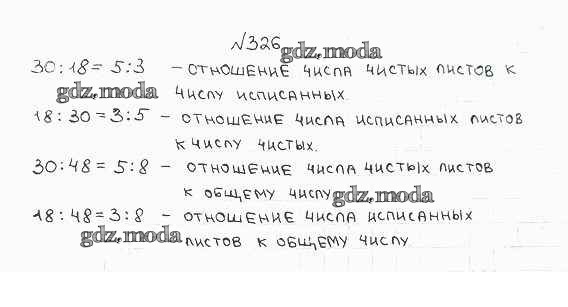 №326
gdz.moda
30:18=5:3 – отношение числа чистых листов к
gdz.moda числу исписанных.
18:30=3:5 – отношение числа исписанных листов
к числу чистых.
30:48=5:8 – отношение числа чистых листов
к общему числу gdz.moda
18:48=3:8 – отношение числа исписанных
gdz.moda листов к общему числу